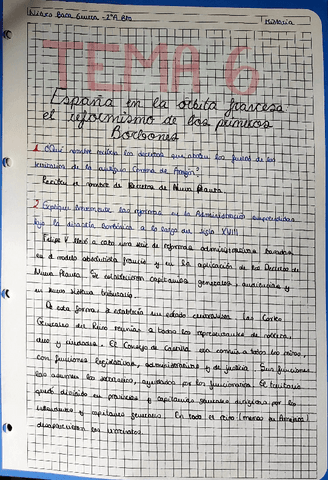 Álvaro Baza Guerra - 2ºA Bto
Historia
TEMA 6
España en la órbita francesa
el reformismo de los primeros
Borbones
1. ¿Qué nombre reciben los decretos que abolen los fueros de los
territorios de la antigua Corona de Aragón?
Reciben el nombre de Decretos de Nueva Planta
2. Explique brevemente las reformas en la Administración emprendidas
bajo la dinastía borbónica a lo largo del siglo XVIII
Felipe V llevó a cabo una serie de reformas administrativas basadas
en el modelo absolutista francés y en la aplicación de los Decretos de
Nueva Planta. Se establecieron capitanías generales, audiencias y
un nuevo sistema tributario.
De esta forma se establecía un estado centralista. Las Cortes
Generales del Reino reunían a todos los representantes de nobleza,
clero y  El Consejo de Castilla era común a todos los reinos,
con funciones legislativas, administrativas y de justicia. Sus funciones
las asumen los secretarios, ayudados por los funcionarios. El territorio
quedó dividido en provincias y capitanías generales dirigidas por los
intendentes y capitanes generales. En todo el reino (menos en América)
desaparecieron los virreinatos.